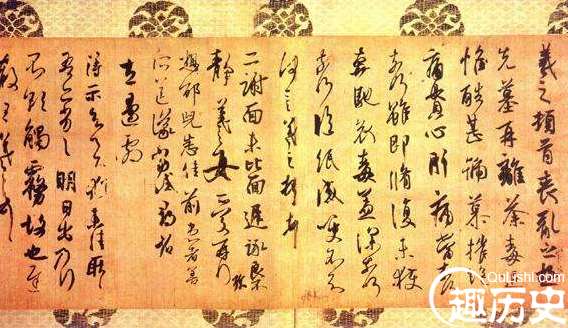 羲之頓首喪亂之極
先墓再離荼毒
惟酷甚號慕摧絕
痛貫心肝痛當奈何
奈何雖即脩復未獲
奔馳哀毒益深奈何
奈何臨紙感哽不知
何言羲之頓首頓首
二謝面未比面遲詠良不
靜羲之女愛再拜
想邵兒悉佳前患者善
所送議當試尋省
左邊劇
得示知足下猶未佳耿耿
吾亦劣劣明日出乃行
不欲觸霧故也遲
散王羲之頓
QuLishi.com
趣历史